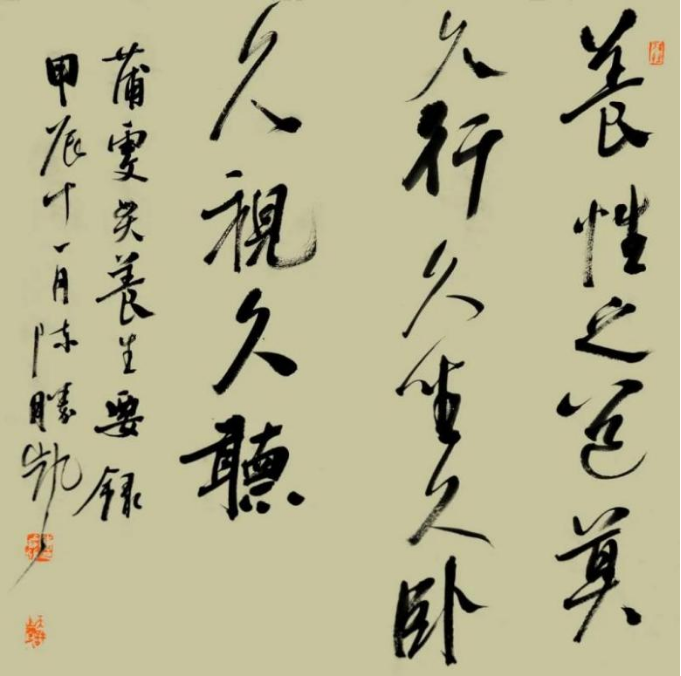 養性之道莫
久行久坐久卧
久視久聽
蒲虔貫養生要録
甲辰十一月陳勝凱